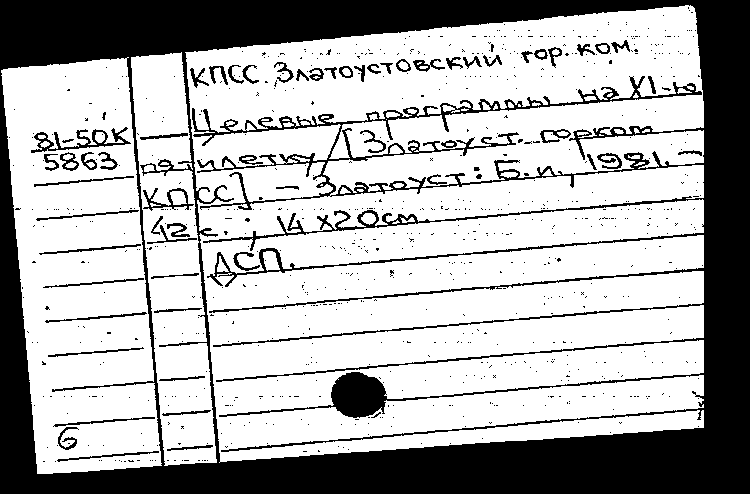 КПСС. Златоустовский гор. ком.
Целевые программы на XI-ю
81-50К
5863
пятилетку / [Златоуст. горком
КПСС]. – Златоуст: Б.и., 1981. –
42 с. ; 14 х20см.
ДСП.
6